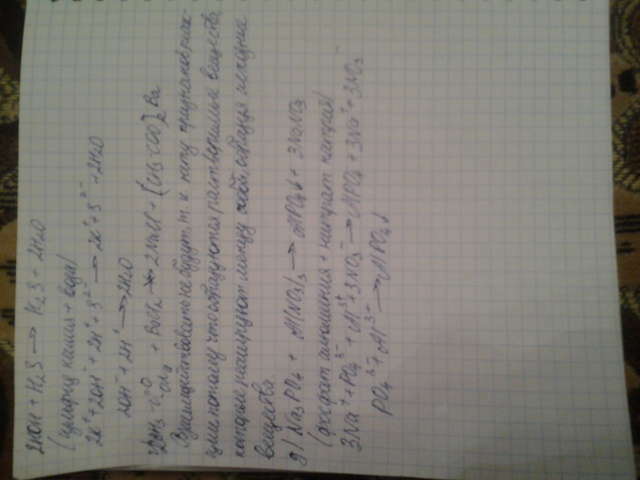 2KOH + H2S → K2S + 2H2O
(сульфид калия + вода)
2K⁺ + 2OH⁻ + 2H⁺ + S²⁻ → 2K⁺ + S²⁻ + 2H2O
2OH⁻ + 2H⁺ → 2H2O
+ BaCl2 → 2NaCl + (CH3COO)2 Ba
Взаимодействовать не будут, т.к. нету признаков реак-
ции потому что образуются растворимые вещества,
которые реагируют между собой, образуя исходные
вещества.
д) Na3PO4 + Al(NO3)3 → AlPO4↓ + 3NaNO3
(фосфат алюминия + нитрат натрия)
3Na⁺ + PO4³⁻ + Al³⁺ + 3NO3⁻ → AlPO4 + 3Na⁺ + 3NO3⁻
PO4³⁻ + Al³⁺ → AlPO4↓